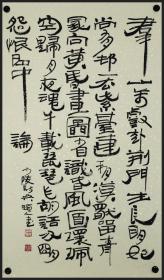 羣山萬壑赴荆門生長明妃
尚有邨一去紫臺連朔漠獨留青
冢向黄昏畫圖省識春風面環珮
空歸月夜魂千載琵琶作胡語分明
怨恨曲中論